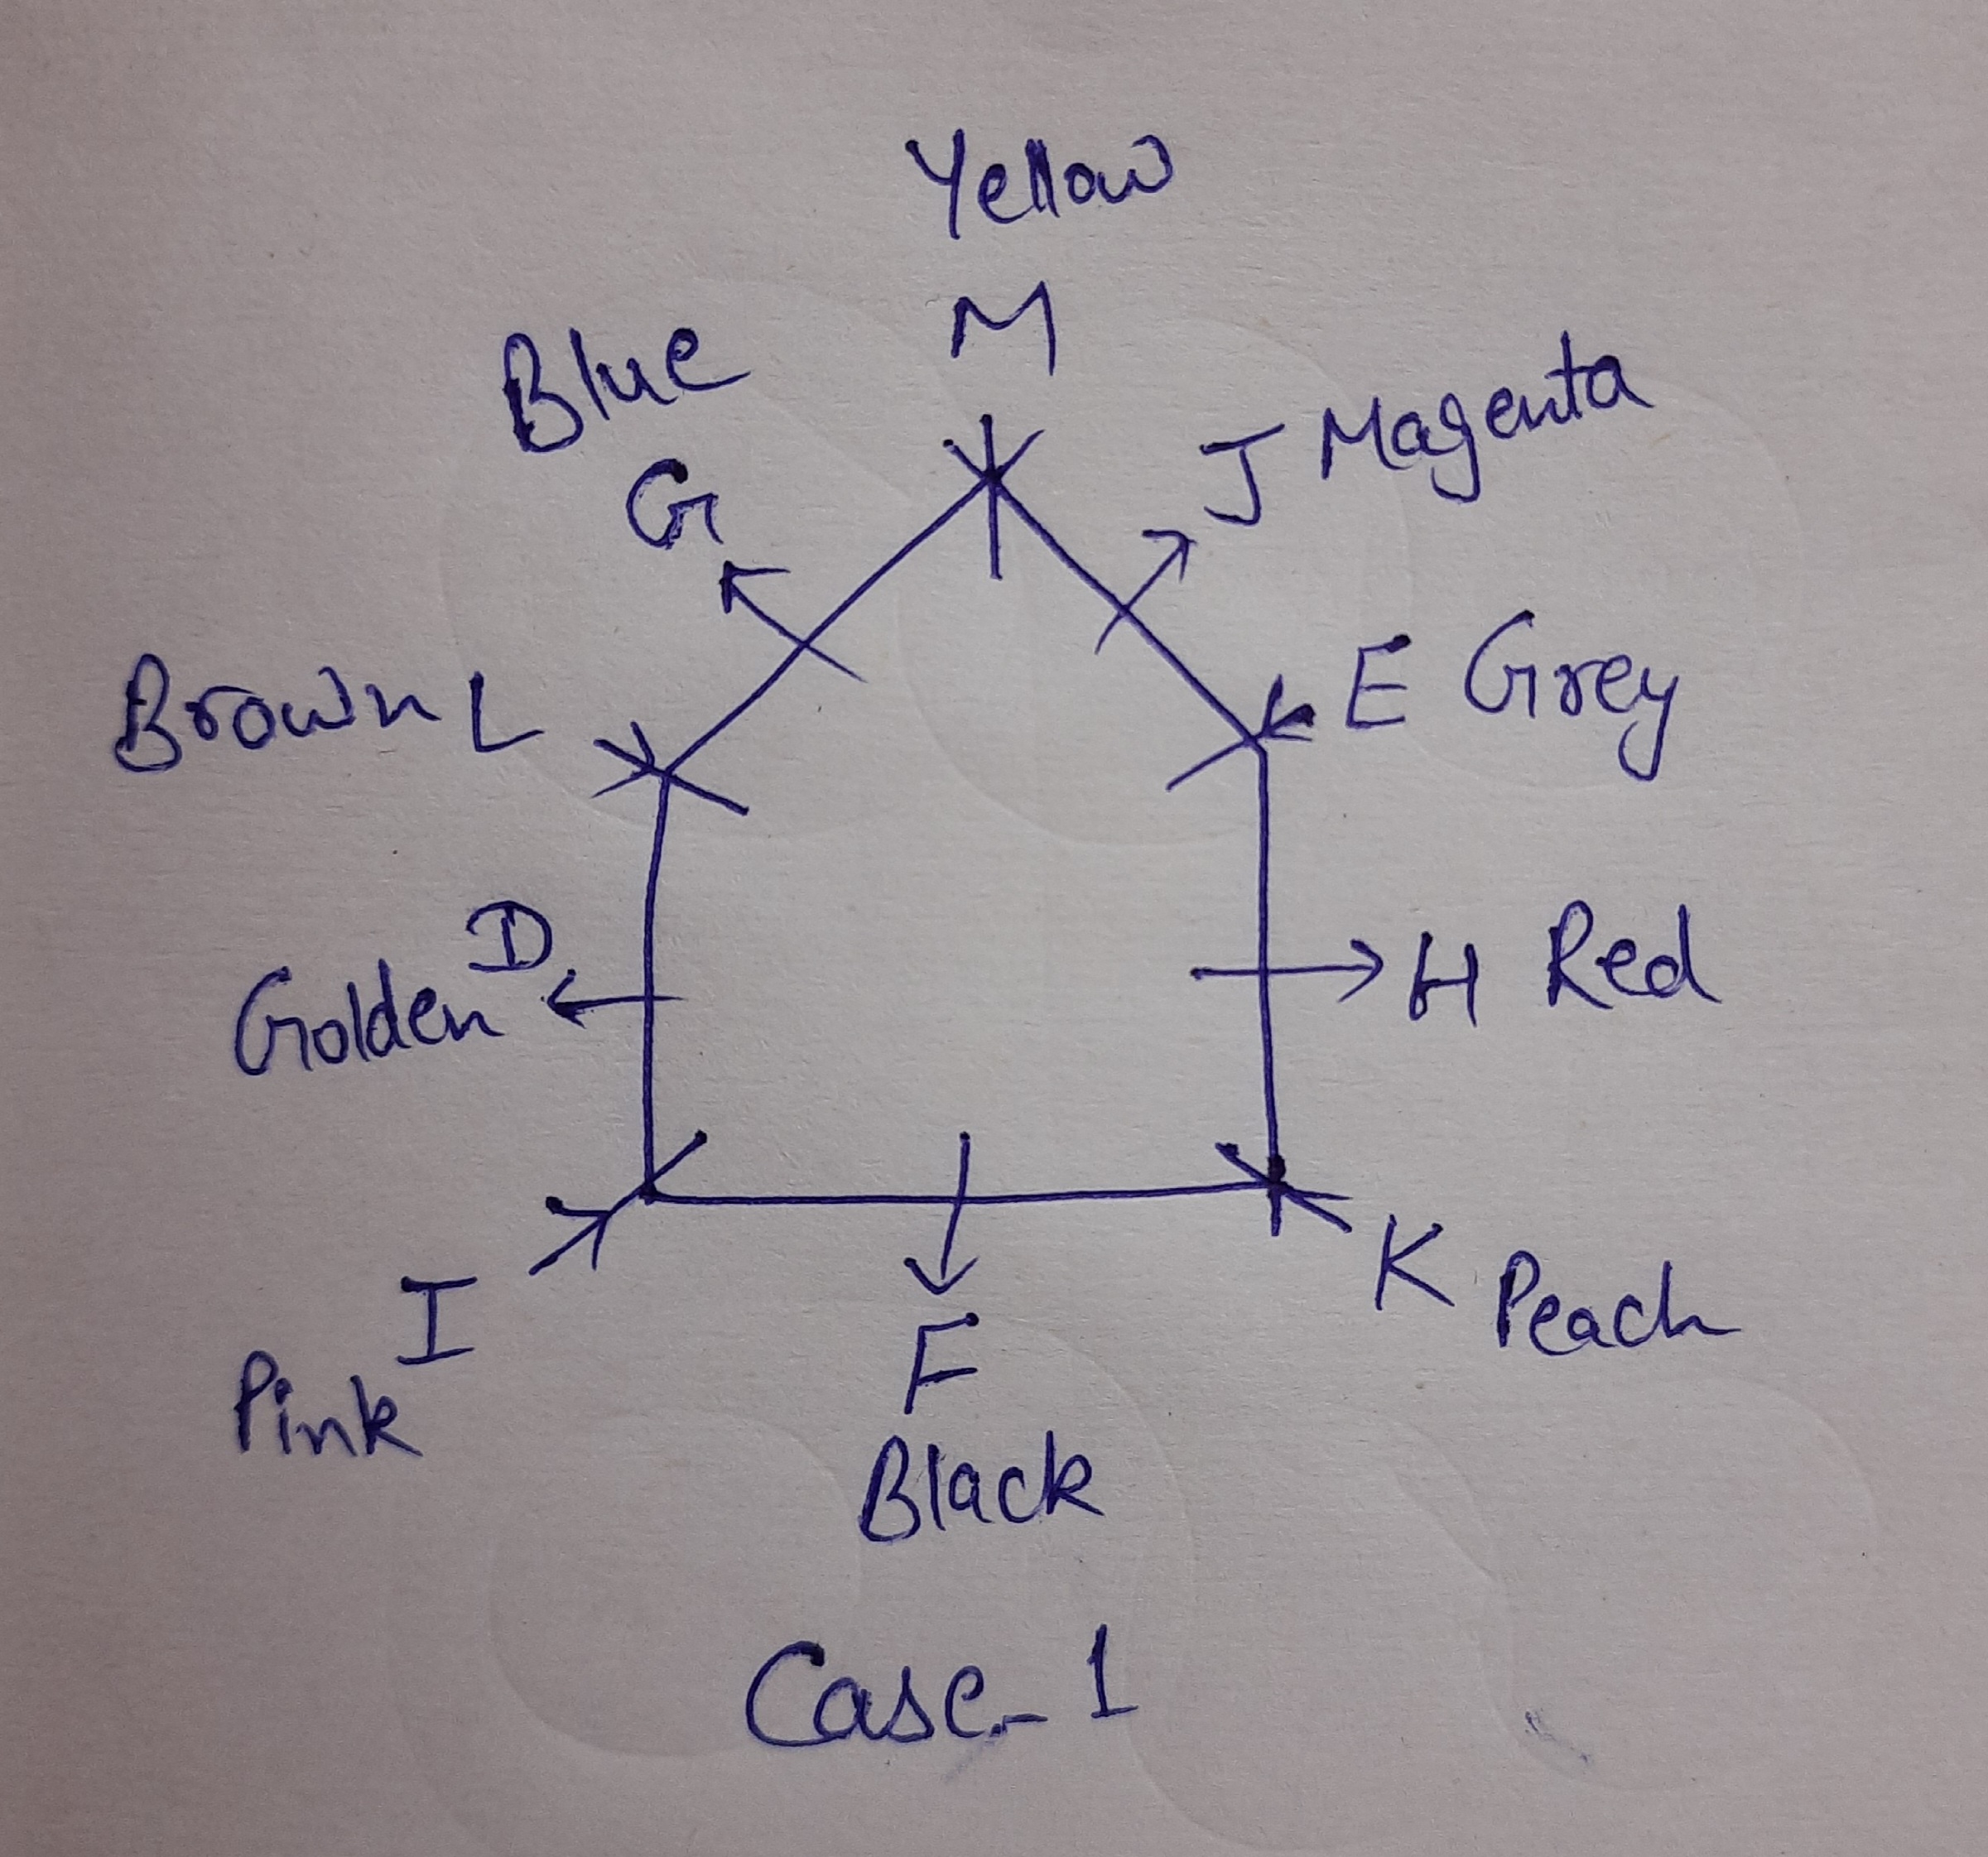 Yellow
M
Blue
G
J Magenta
Brown L
E Grey
D
Golden
H Red
I
Pink
F
Black
K Peach
Case-1